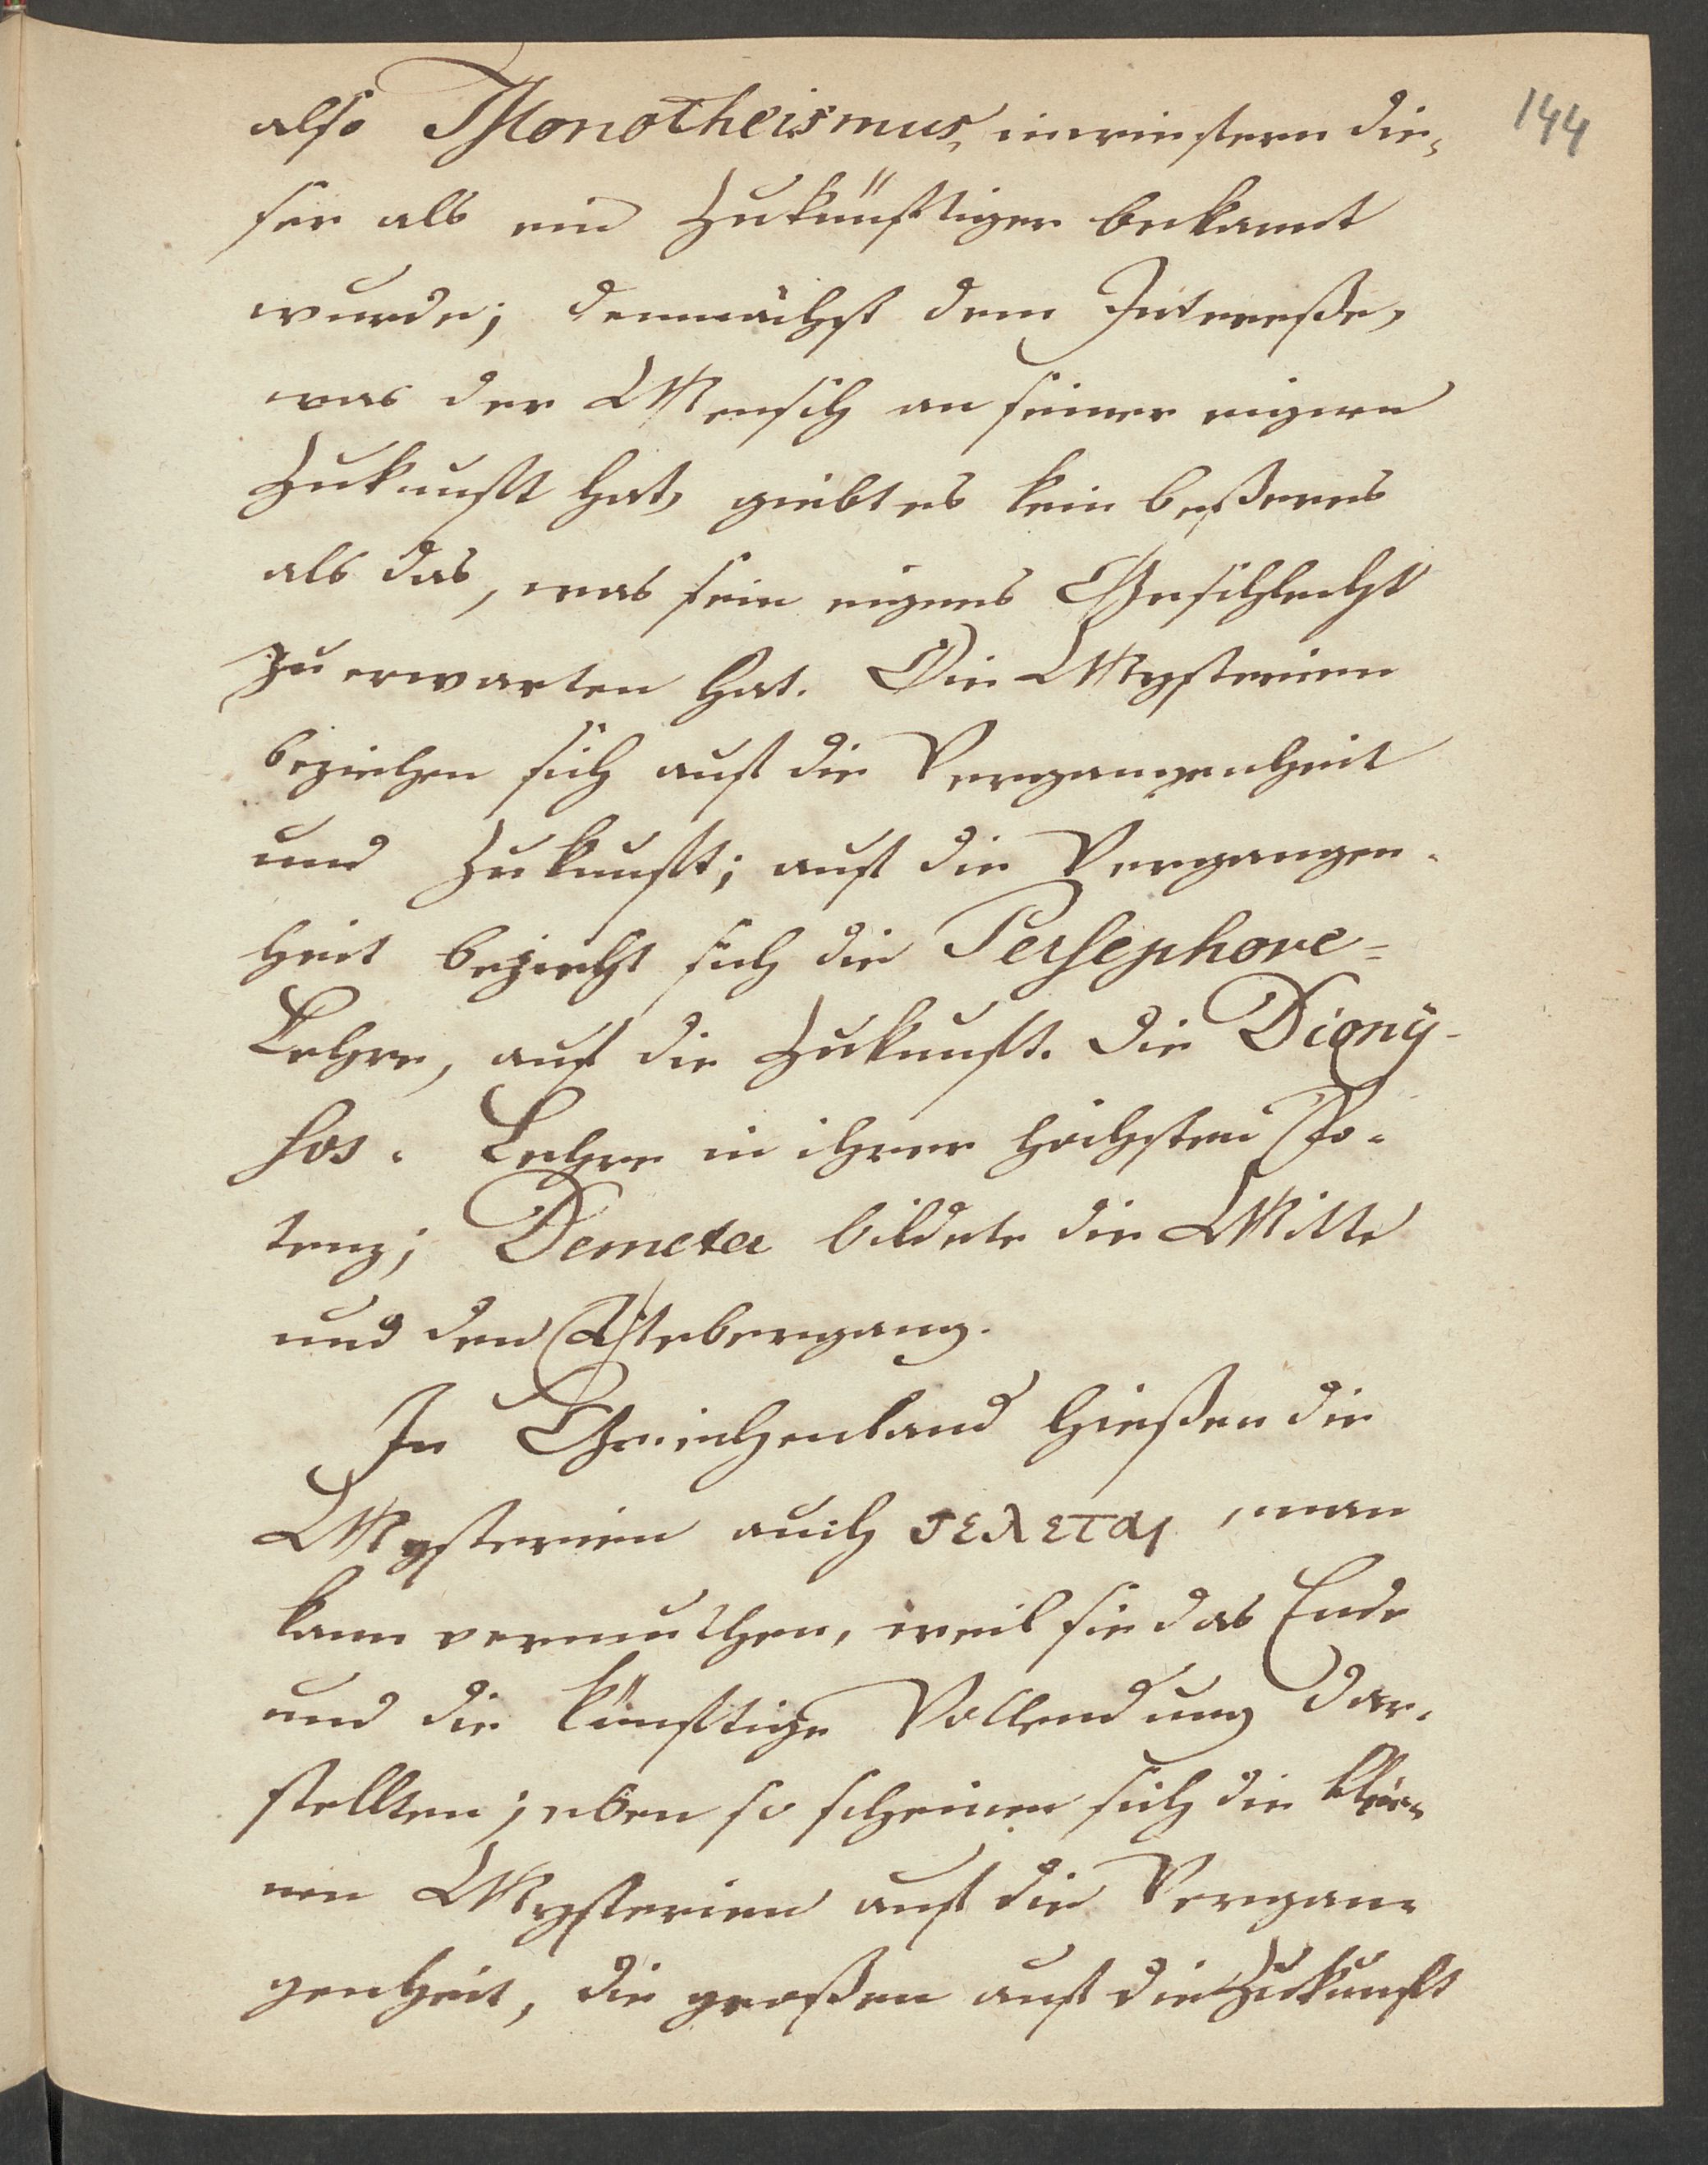 also Monotheismus, inwiefern die-
144
ser als ein Zukünftiger bekannt
wurde; demnächst dem Intereße,
was der Mensch an seiner eignen
Zukunft hat, giebt es kein beßeres
als das, was sein eigenes Geschlecht
zu erwarten hat. Die Mysterien
beziehen sich auf die Vergangenheit
und Zukunft; auf die Vergangen-
heit bezieht sich die Persephone-
Lehre, auf die Zukunft. die Diony-
sos- Lehre in ihrer höchsten Po-
tenz; Demeter bildete die Mitte
und den Uebergang.
In Griechenland hießen die
Mysterien auch τελεται, man
kann vermuthen, weil sie das Ende
und die künftige Vollendung dar-
stellten; eben so scheinen sich die klei-
nen Mysterien auf die Vergan-
genheit, die großen auf die Zukunft